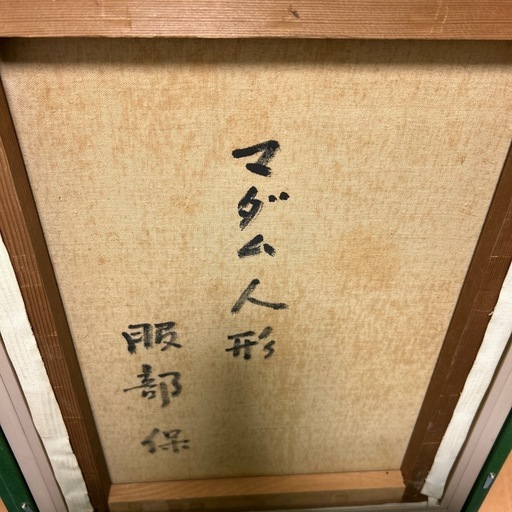 マダム人形
服部保